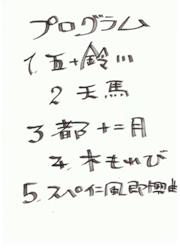 プログラム
1. 五十鈴川
2 天馬
3 都十二月
4. 木もれび
5. スペイン風即興曲